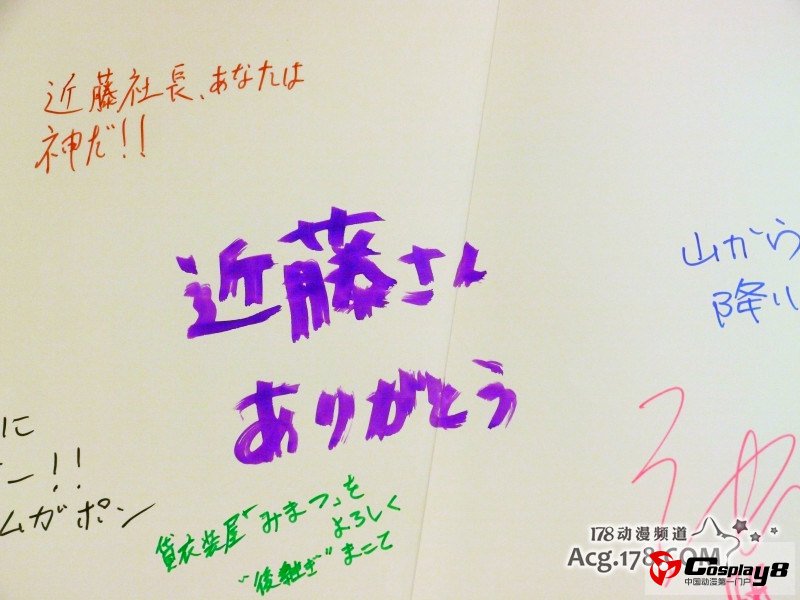 近藤社長、あなたは
神だ!!
近藤さん
ありがとう
山から
降り
に
ー!!
ムガポン
貸衣装屋「みまつ」を
よろしく
"後継ぎ"まこて
178动漫频道
Acg.178.COM
Cosplay8
中国动漫第一门户